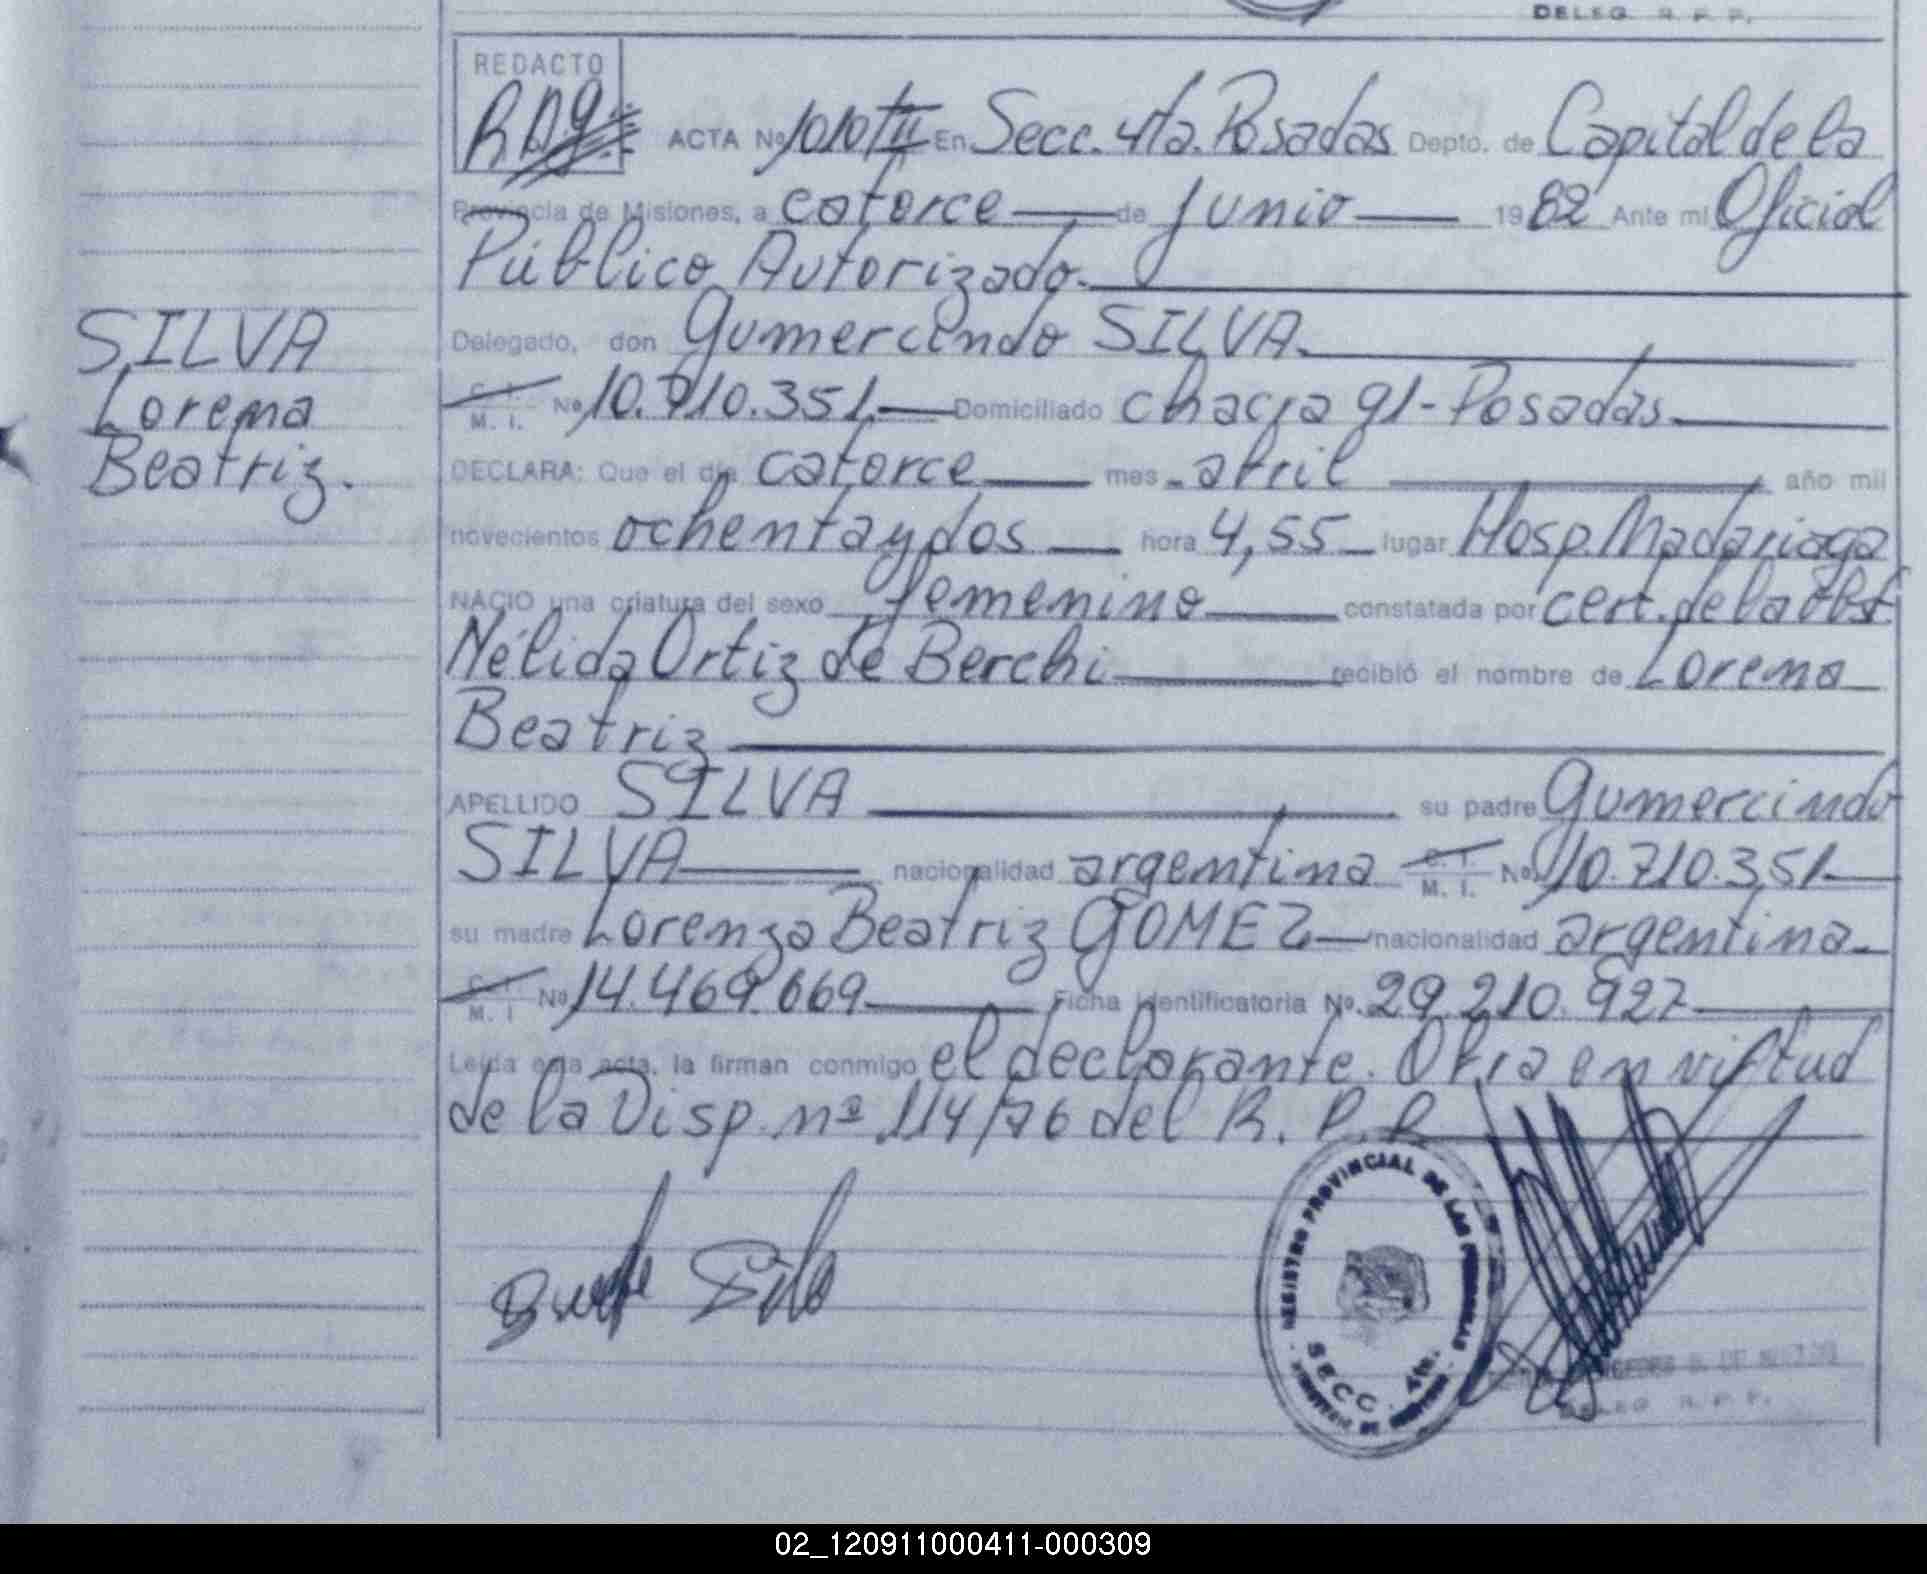 DELEG. R. P. P.
REDACTO
ACTA Nº 1010 TII En Secc. 4ta. Posadas Depto. de Capital de la
Provincia de Misiones, a catorce de Junio 1982 Ante mi Oficial
Público Autorizado.
Delegado, don Gumercindo SILVA.
C. I. M. I. Nº 10.710.351. Domiciliado chacra 91 - Posadas.
SILVA
Lorena
Beatriz.
DECLARA: Que el día catorce mes abril año mil
novecientos ochentaydos hora 4,55 lugar Hosp. Madariaga
NACIO una criatura del sexo femenino constatada por cert. de la obst.
Nélida Ortiz de Berchi recibió el nombre de Lorena
Beatriz
APELLIDO SILVA su padre Gumercindo
SILVA nacionalidad argentina C. I. M. I. Nº 10.710.351
su madre Lorenza Beatriz GOMEZ nacionalidad argentina.
C. I. M. I. Nº 14.469.669 Ficha Identificatoria Nº 29.210.927
Leída esta acta, la firman conmigo el declarante. Obra en virtud
de la Disp. nº 114/76 del R. P. P.
REGISTRO PROVINCIAL DE LAS PERSONAS
SECC. 4ta.
DELEG. R. P. P.
02_120911000411-000309